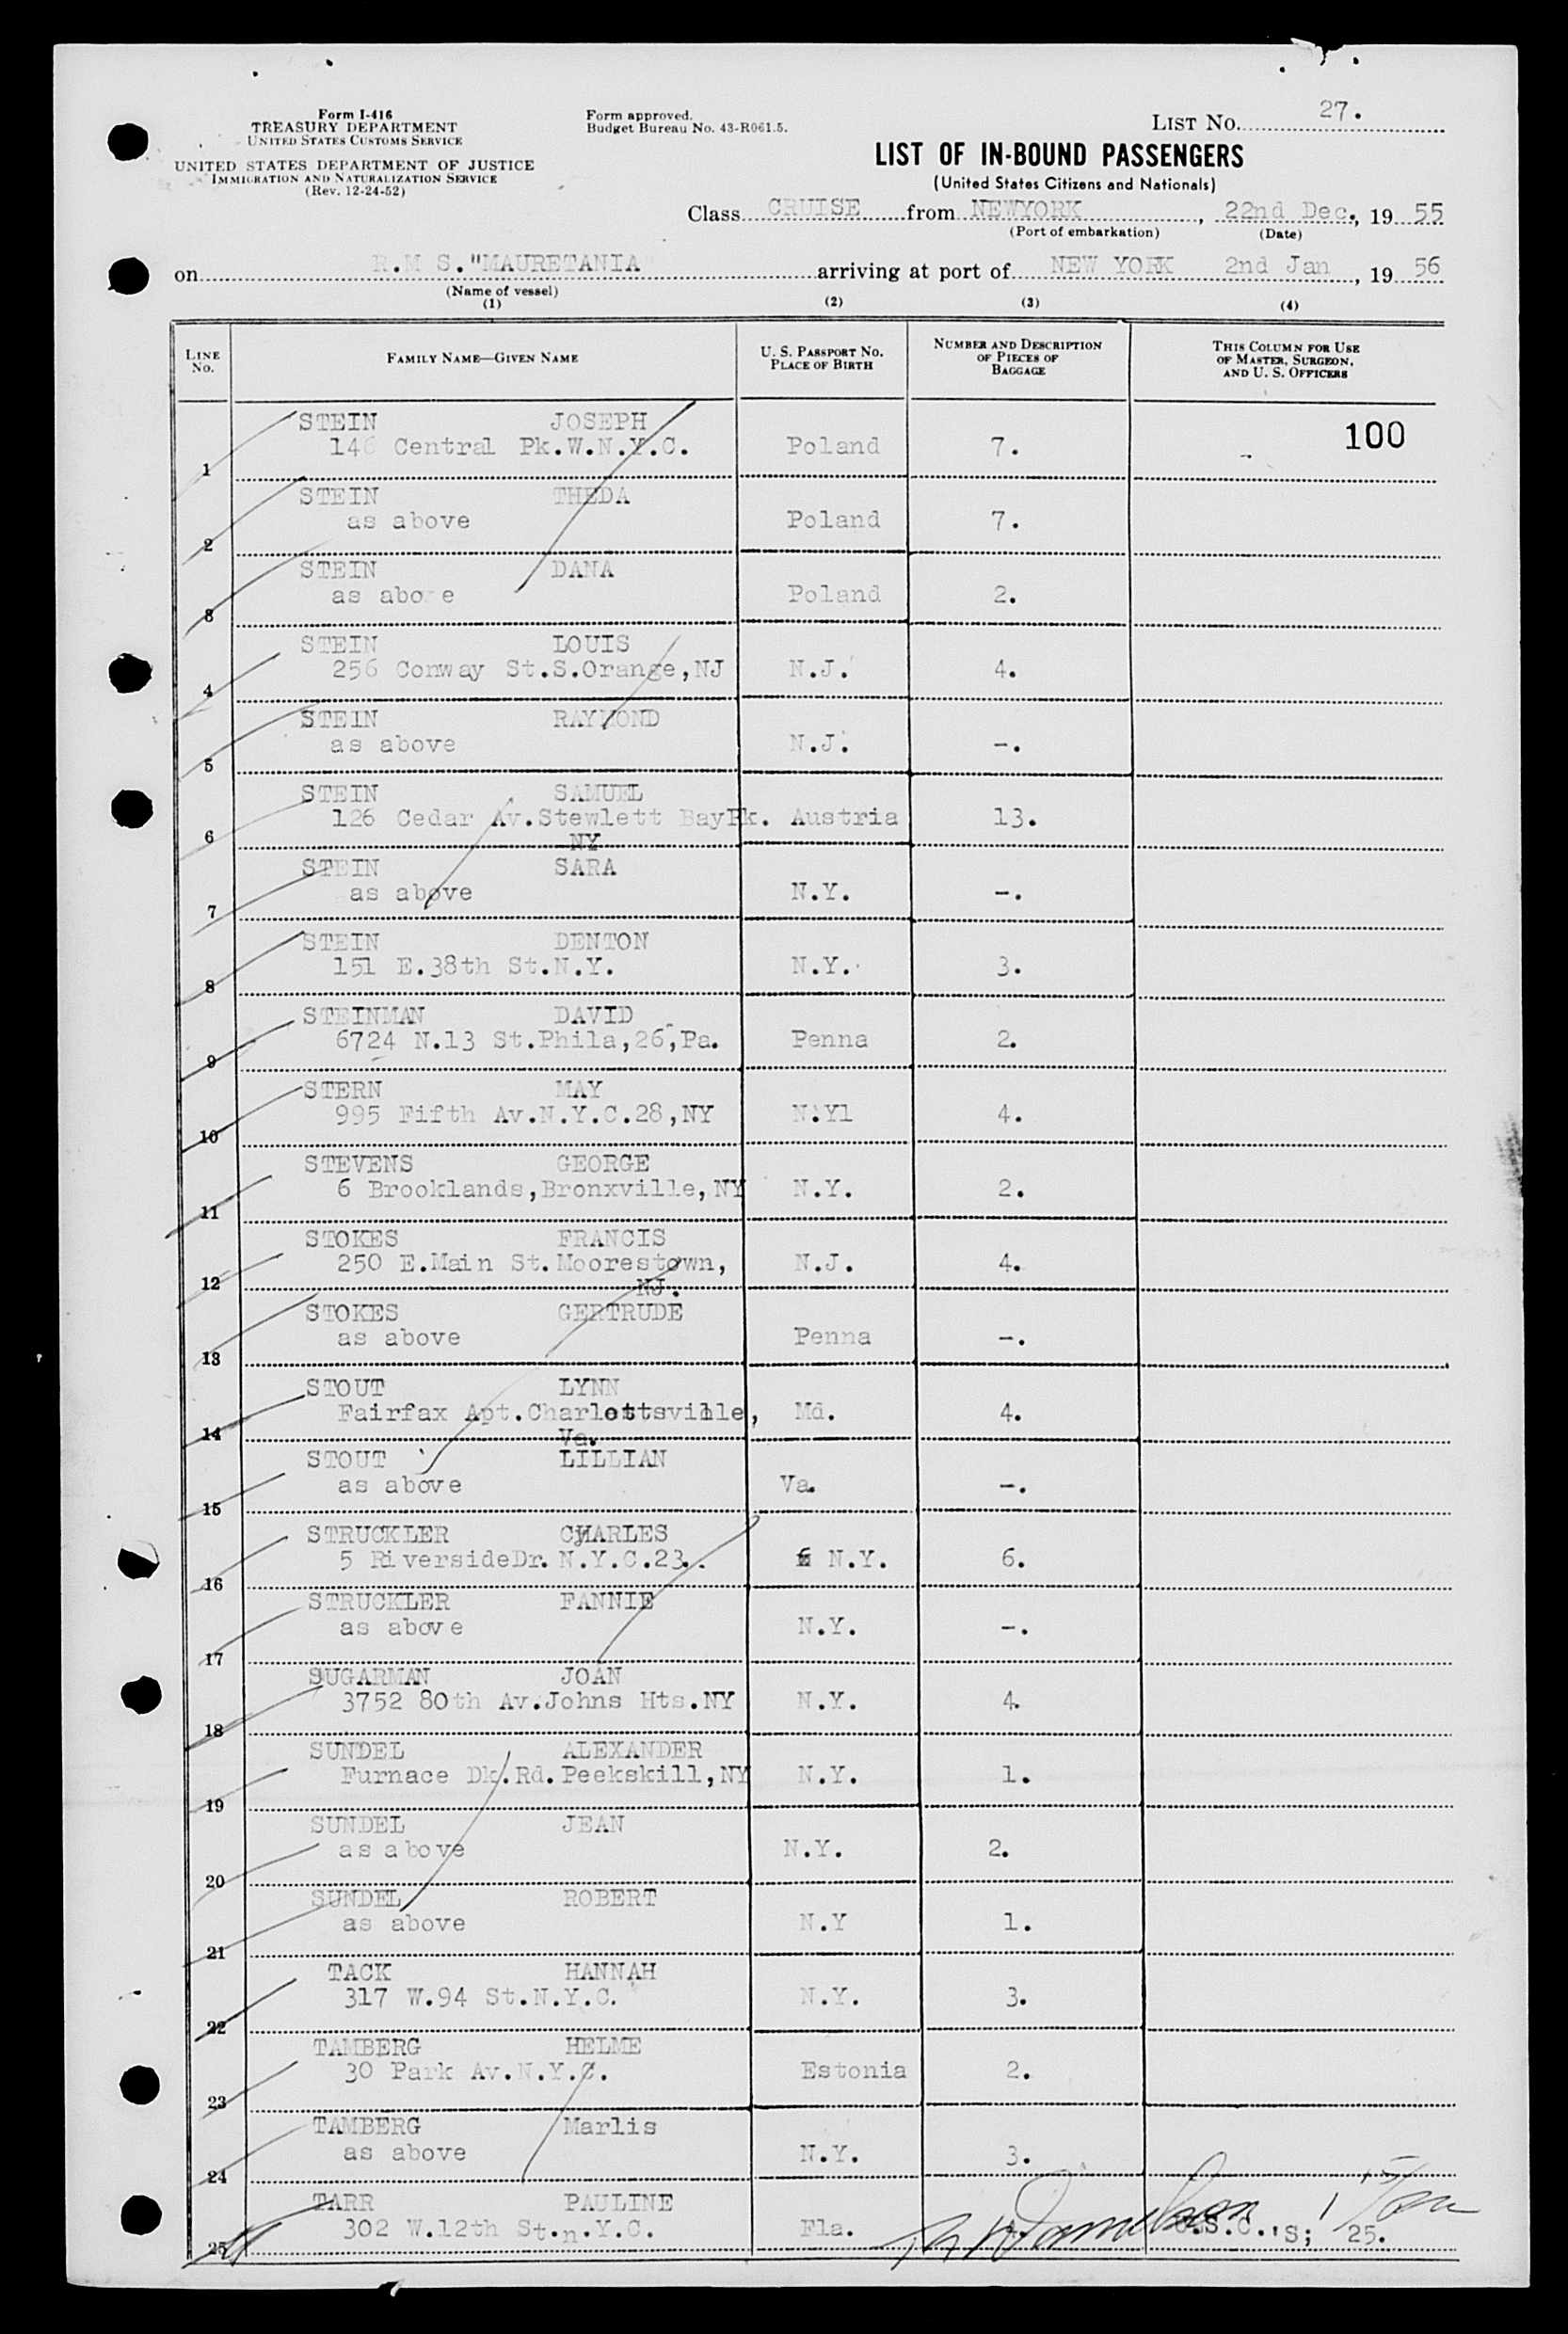 Form I-416
TREASURY DEPARTMENT
UNITED STATES CUSTOMS SERVICE
UNITED STATES DEPARTMENT OF JUSTICE
IMMIGRATION AND NATURALIZATION SERVICE
(Rev. 12-24-52)
Form approved.
Budget Bureau No. 43-R061.5.
LIST No. 27.
LIST OF IN-BOUND PASSENGERS
(United States Citizens and Nationals)
Class CRUISE from NEWYORK, 22nd Dec., 19 55
(Port of embarkation) (Date)
on R.M S."MAURETANIA arriving at port of NEW YORK 2nd Jan, 19 56
(Name of vessel)
(1) (2) (3) (4)
LINE No. FAMILY NAME—GIVEN NAME U. S. PASSPORT No. PLACE OF BIRTH NUMBER AND DESCRIPTION OF PIECES OF BAGGAGE THIS COLUMN FOR USE OF MASTER, SURGEON, AND U. S. OFFICERS
STEIN JOSEPH
1 146 Central Pk.W.N.Y.C. Poland 7. 100
STEIN THEDA
2 as above Poland 7.
STEIN DANA
3 as abo e Poland 2.
STEIN LOUIS
4 256 Conway St.S.Orange,NJ N.J. 4.
STEIN RAYMOND
5 as above N.J. -.
STEIN SAMUEL
6 126 Cedar Av.Stewlett BayPk. Austria 13.
NY
STEIN SARA
7 as above N.Y. -.
STEIN DENTON
8 151 E.38th St.N.Y. N.Y. 3.
STEINMAN DAVID
9 6724 N.13 St.Phila,26,Pa. Penna 2.
STERN MAY
10 995 Fifth Av.N.Y.C.28,NY N.Yl 4.
STEVENS GEORGE
11 6 Brooklands,Bronxville,NY N.Y. 2.
STOKES FRANCIS
12 250 E.Main St.Moorestown, N.J. 4.
NJ.
STOKES GERTRUDE
13 as above Penna -.
STOUT LYNN
14 Fairfax Apt.Charlottsville, Md. 4.
Va.
STOUT LILLIAN
15 as above Va. -.
STRUCKLER CHARLES
16 5 RiversideDr. N.Y.C.23.. N.Y. 6.
STRUCKLER FANNIE
17 as above N.Y. -.
SUGARMAN JOAN
18 3752 80th Av.Johns Hts.NY N.Y. 4.
SUNDEL ALEXANDER
19 Furnace Dk.Rd.Peekskill,NY N.Y. 1.
SUNDEL JEAN
20 as above N.Y. 2.
SUNDEL ROBERT
21 as above N.Y 1.
TACK HANNAH
22 317 W.94 St.N.Y.C. N.Y. 3.
TAMBERG HELME
23 30 Park Av.N.Y.C. Estonia 2.
TAMBERG Marlis
24 as above N.Y. 3.
TARR PAULINE
25 302 W.12th St.n.Y.C. Fla. U.S.C.'S; 25.